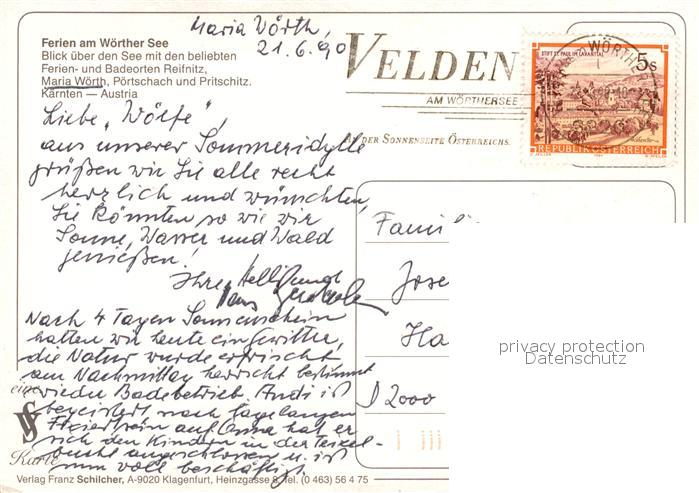 Maria Wörth,
21.6.90
Ferien am Wörther See
Blick über den See mit den beliebten
Ferien- und Badeorten Reifnitz,
Maria Wörth, Pörtschach und Pritschitz.
Kärnten — Austria
VELDEN
AM WÖRTHERSEE
DER SONNENSEITE ÖSTERREICHS.
WÖRTH
STIFT ST. PAUL IM LAVANTTAL
5s
REPUBLIK ÖSTERREICH
Liebe „Wölfe",
aus unserer Sommeridylle
grüßen wir Sie alle recht
herzlich und wünschten,
Sie könnten so wie wir
Sonne, Wasser und Wald
genießen!
Ihre
Nach 4 Tagen Sonnenschein
hatten wir heute ein Gewitter,
die Natur wurde erfrischt
am Nachmittag herrscht bestimmt
wieder Badebetrieb. Andi ist
begeistert nach tagelangem
auf Oma hat er
sich den Kindern in der
angeschlossen u. ist
nun voll beschäftigt.
eine
Karte
Famili
Jose
Ha
D 2000
privacy protection
Datenschutz
Verlag Franz Schilcher, A-9020 Klagenfurt, Heinzgasse 8, Tel. (0 463) 56 4 75